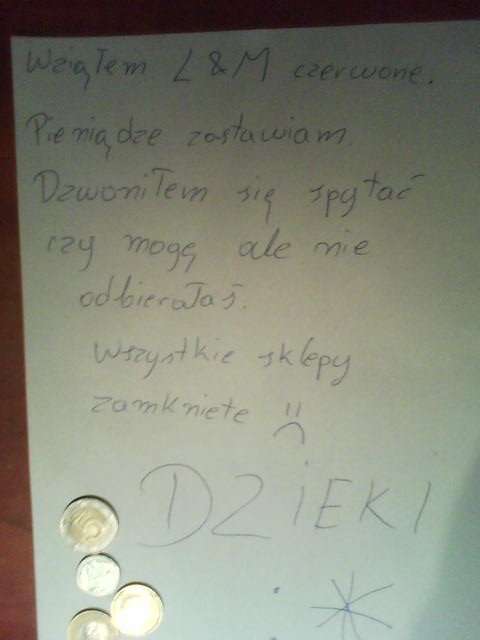 Wziąłem L&M czerwone.
Pieniądze zostawiam.
Dzwoniłem się spytać
czy mogę ale nie
odbierałaś.
Wszystkie sklepy
zamkniete :(
DZIEKI
5